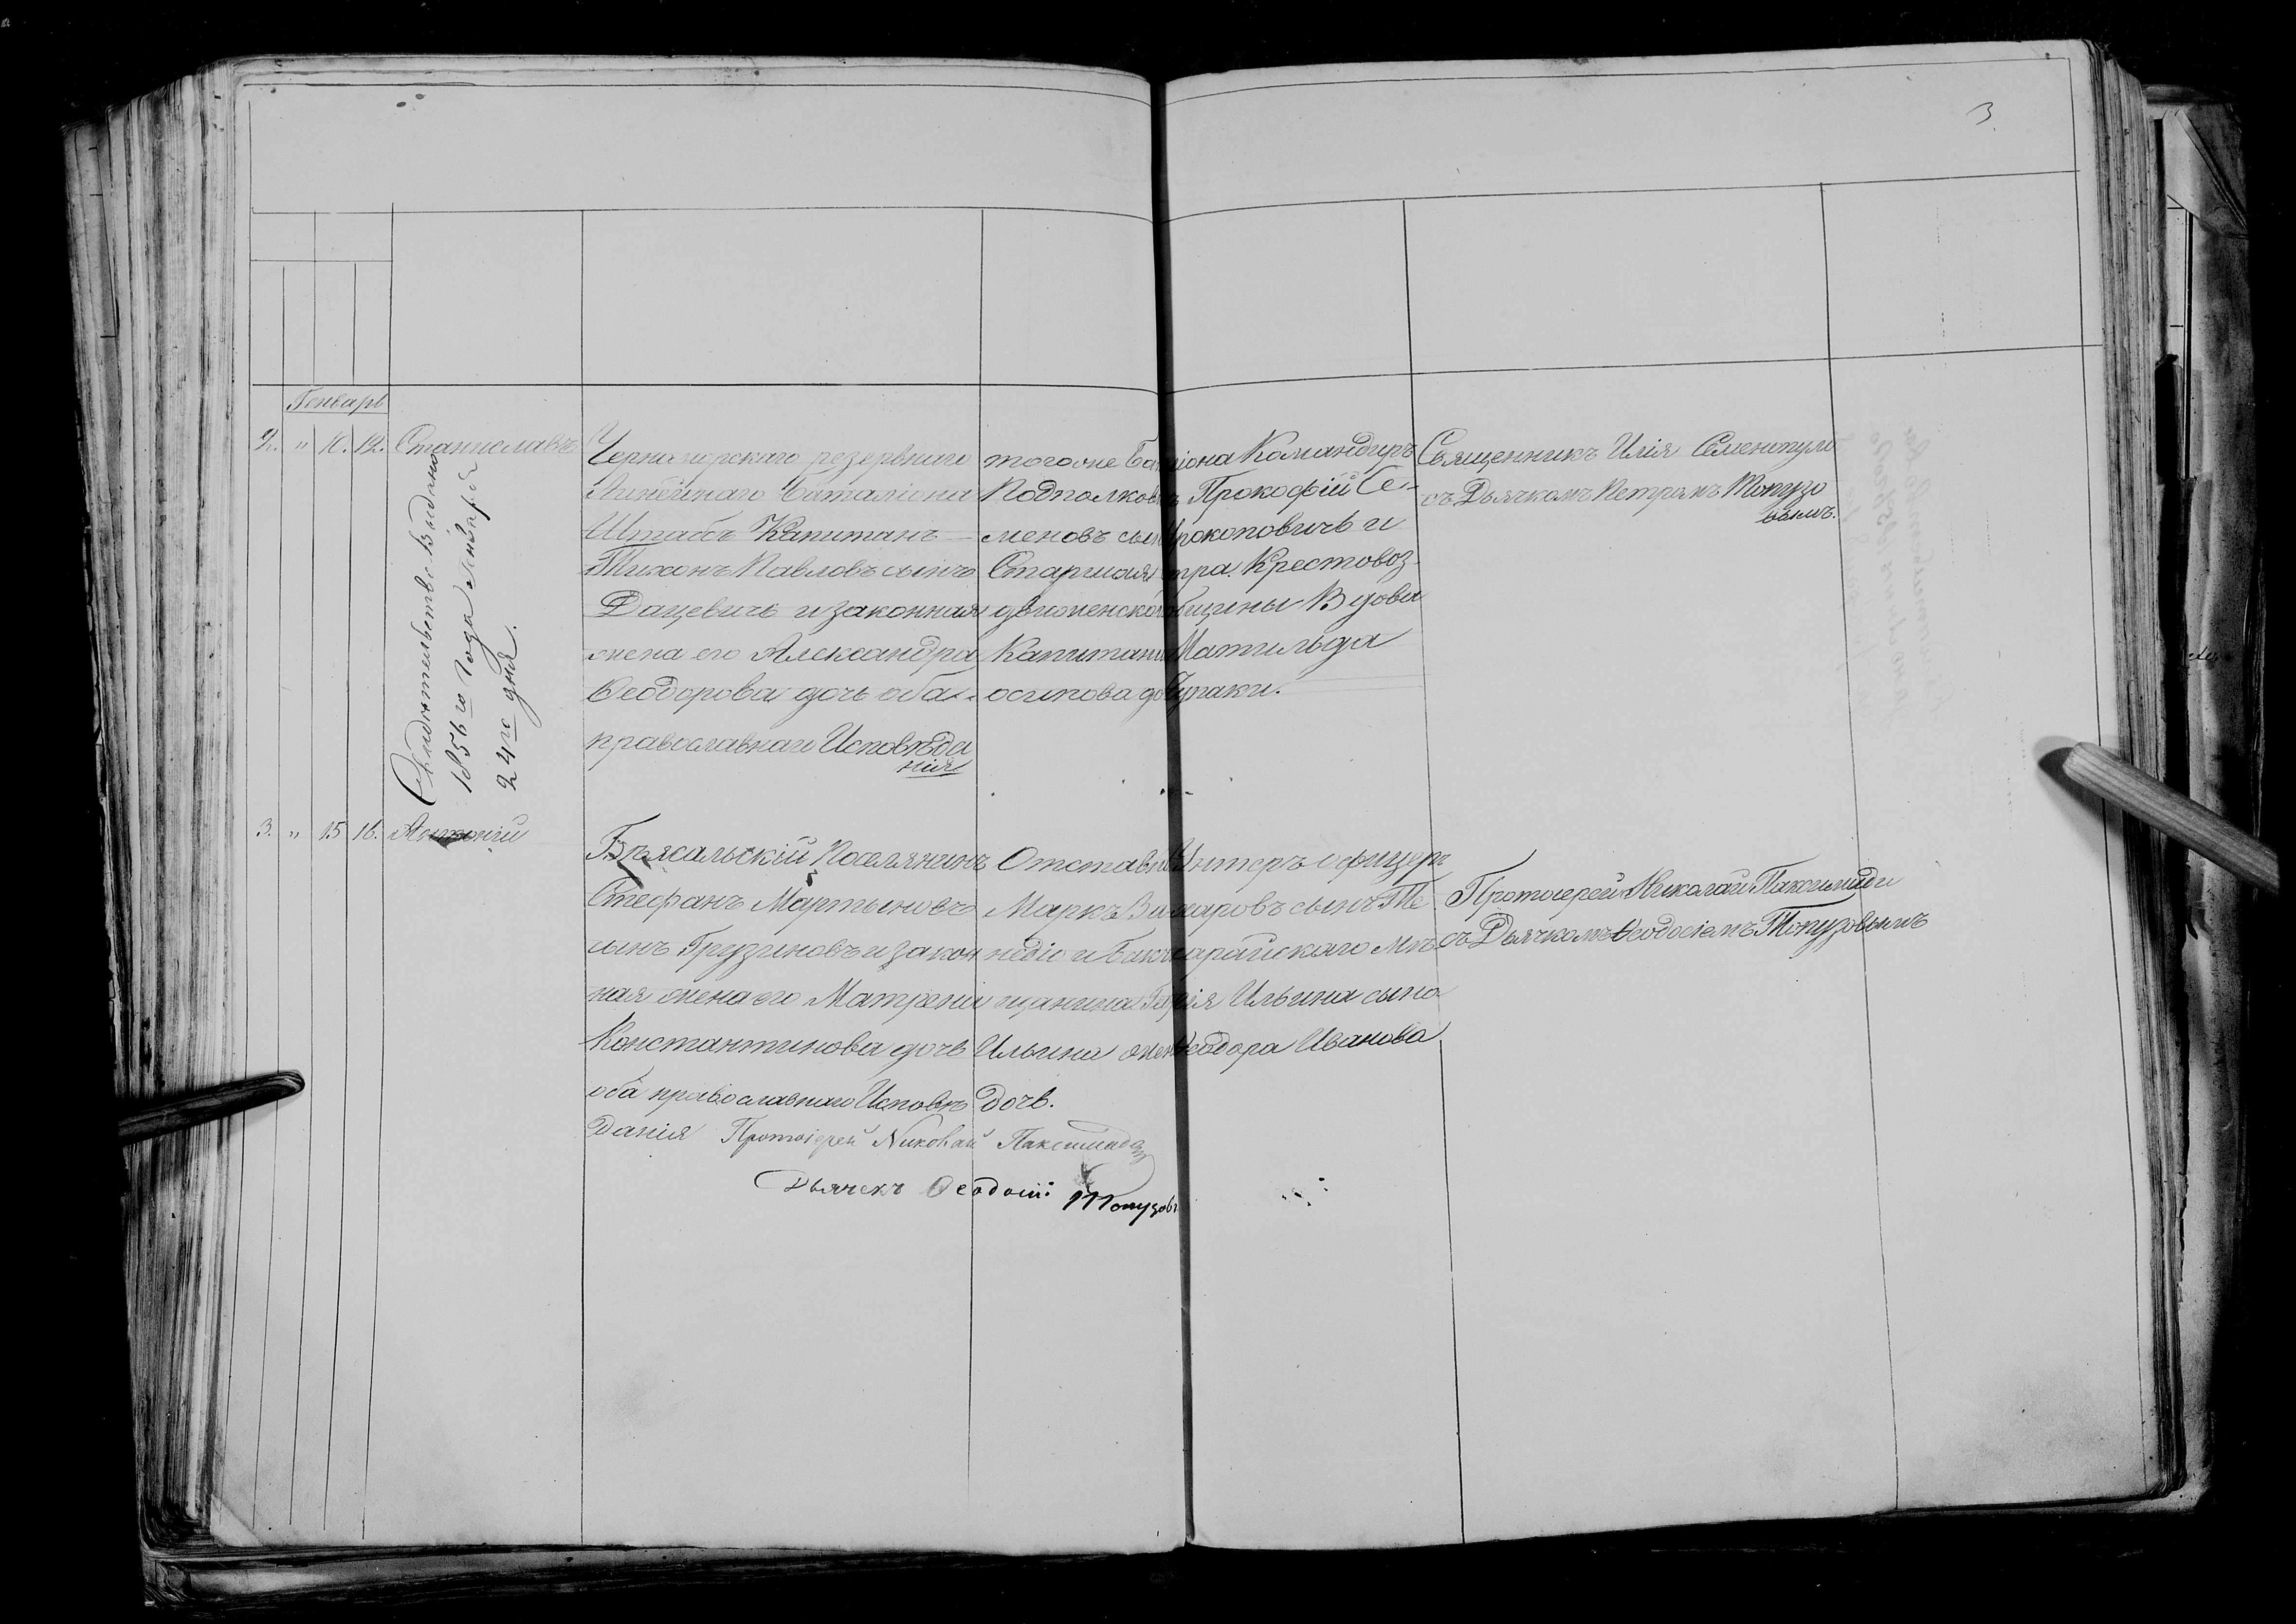 3
Генварь
2. " 10. 12. Станиславъ
Свидѣтельство выдано
1856 го года Ноября
24 го дня.
Черноморскаго резервнаго
Линѣйнаго баталіона
Штабсъ Капитанъ
Тихонъ Павловъ сынъ
Дацевичь и законная
жена его Александра
Ѳеодорова дочь оба
православнаго Исповѣда
нія
тогоже Баталіона Командиръ
Подполковникъ Прокофій Се-
меновъ сынъ Прокоповичь и
Старшая сестра Крестовоз-
движенской общины Вдова
Капитана Матильда
осипова дочь
Священникъ Илія
съ Дьячкомъ Петромъ Топузо
вымъ.
3. " 15 16. Антоній
Біясальскій Поселянинъ
Стефанъ Мартыновъ
сынъ Грузиновъ и закон
ная жена его Матрена
Константинова дочь
оба православнаго Исповѣ
данія
Отставный Унтеръ офицеръ
Маркъ сынъ
и Бакчисарайскаго мѣ
щанина Ильина сына
Ильина жена Ѳеодора Иванова
дочь.
Протоіерей Николай Паксимади
съ Дьячкомъ Ѳеодосіемъ Топузовымъ
Протоіерей Николай Паксимади
Дьячекъ Ѳеодосій Топузовъ